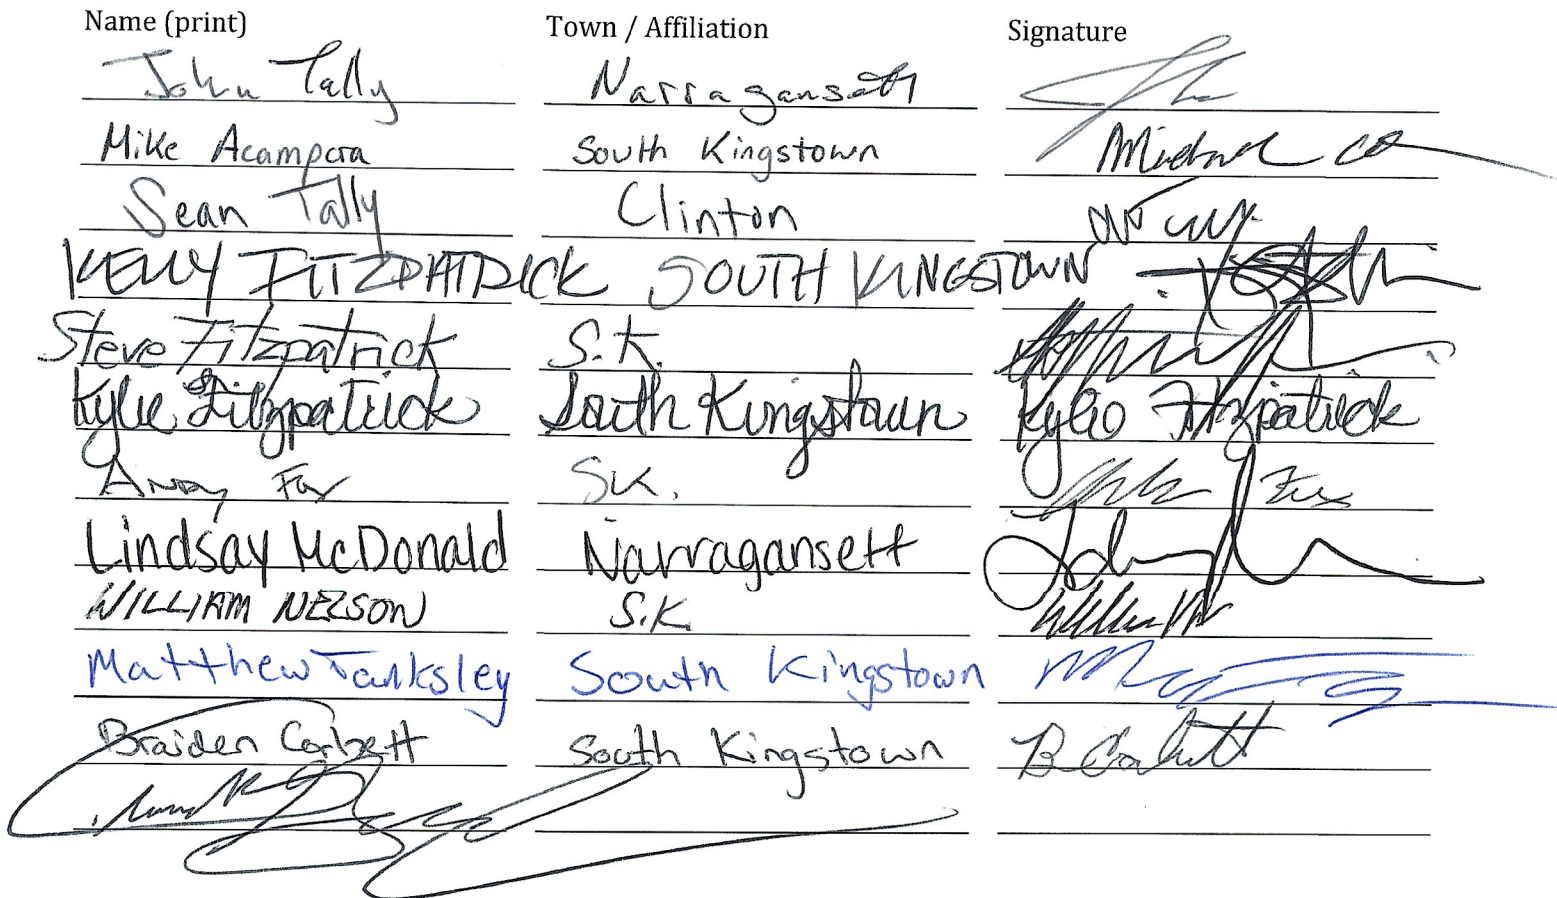 Name (print) Town / Affiliation Signature
John Tally Narragansett
Mike Acampora South Kingstown Michael
Sean Tally Clinton
KELLY FITZPATRICK SOUTH KINGSTOWN
Steve Fitzpatrick S.K.
Kylie Fitzpatrick South Kingstown Kylie Fitzpatrick
Andy Fox SK. Fox
Lindsay McDonald Narragansett
WILLIAM NELSON S.K.
Matthew Tanksley South Kingstown
Braiden Corbett South Kingstown B Corbett